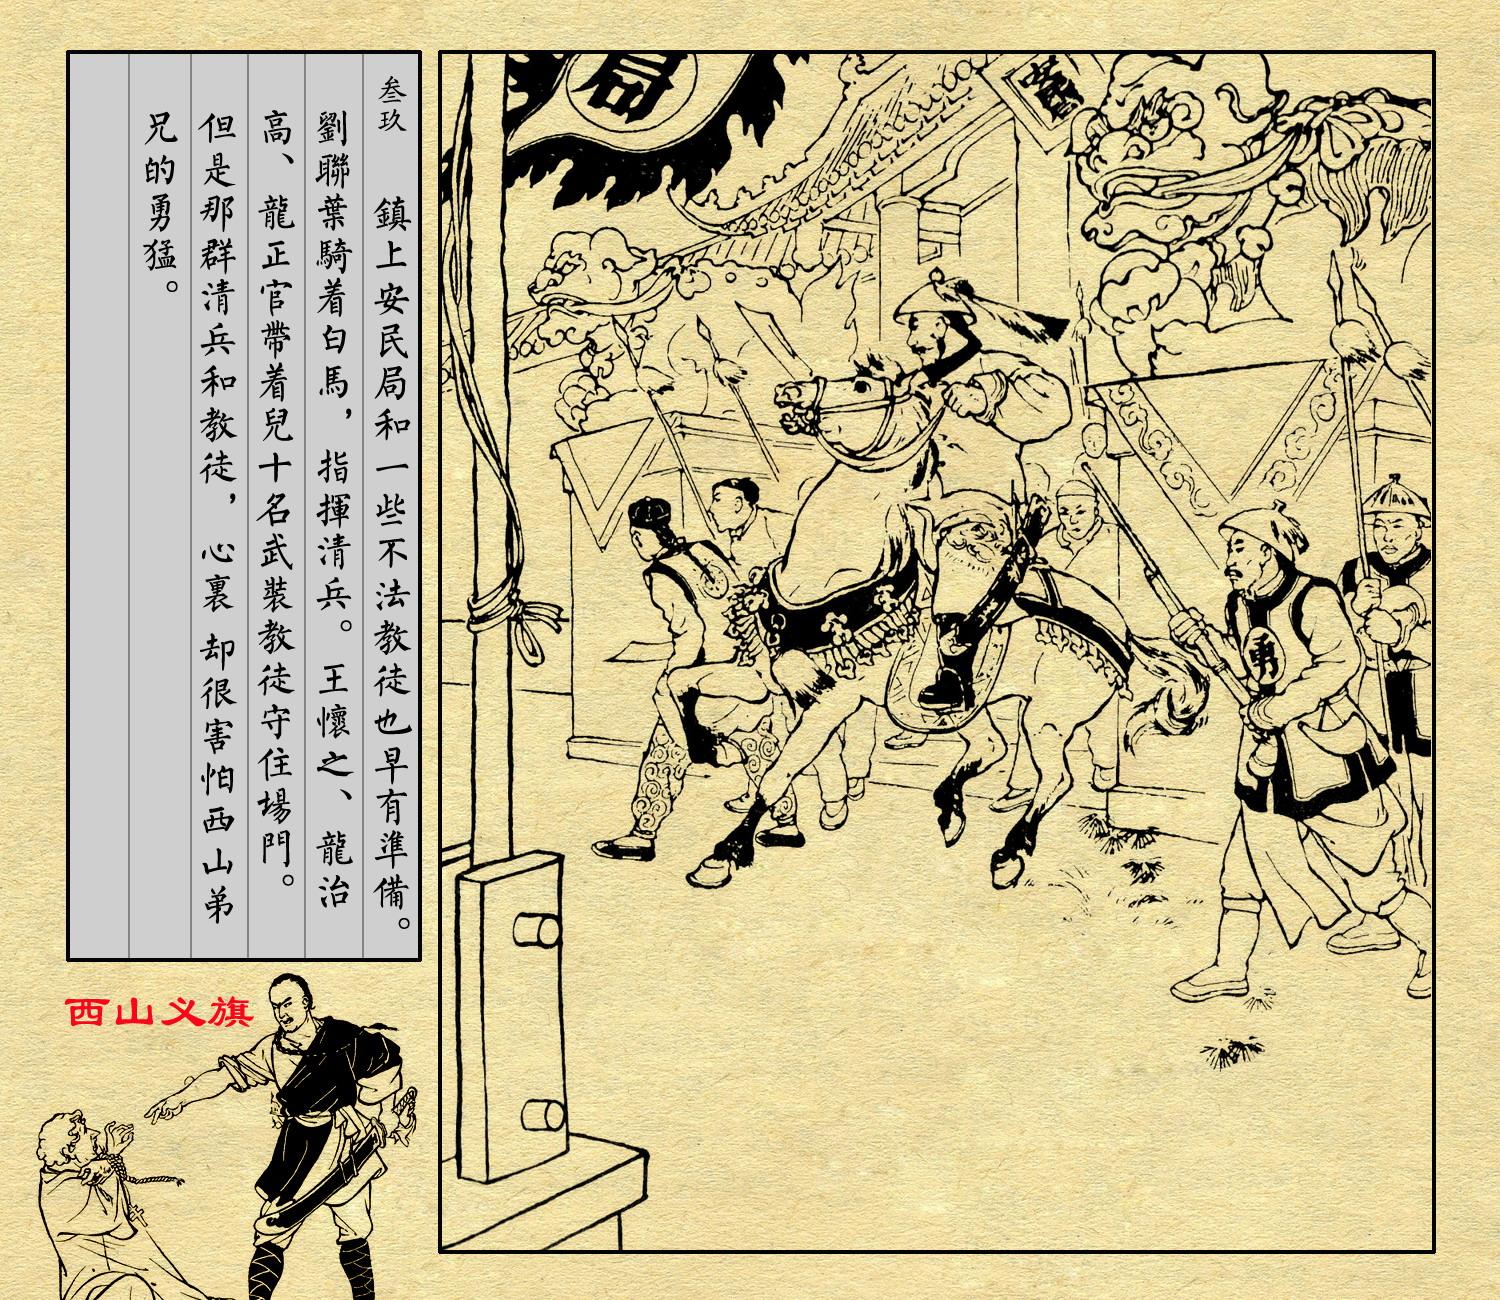 叁玖
鎮上安民局和一些不法教徒也早有準備。
劉聯葉騎着白馬，指揮清兵。王懷之、龍治
高、龍正官帶着兒十名武裝教徒守住場門。
但是那群清兵和教徒，心裏却很害怕西山弟
兄的勇猛。
西山义旗
局
勇